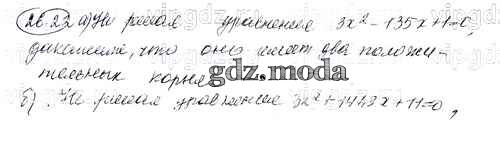 26.22 а) Не решая уравнения 3x² - 135x + 1 = 0,
докажите, что оно имеет два положи-
тельных корня
gdz.moda
б) Не решая уравнения 3x² + 1448x + 11 = 0,